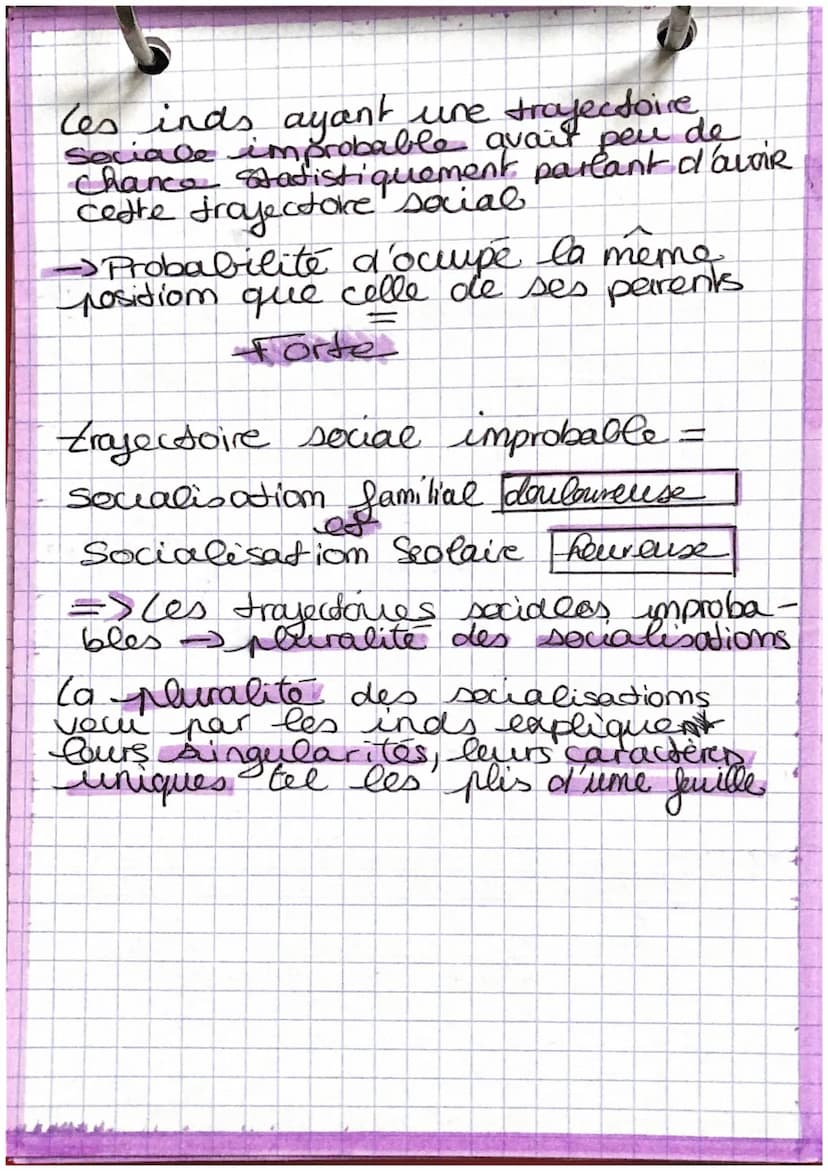 Les inds ayant une trajectoire
sociale improbable avait peu de
chance statistiquement parlant d'avoir
cette trajectoire social
→ Probabilité d'occupé la même
position que celle de ses parents
=
Forte
trajectoire social improbable =
socialisation familial douloureuse
et
Socialisation Scolaire heureuse
=> Les trajectoires sociales improba-
bles → pluralité des socialisations
La pluralité des socialisations
vécu par les inds expliquent
leurs singularités, leurs caractères
uniques tel les plis d'une feuille